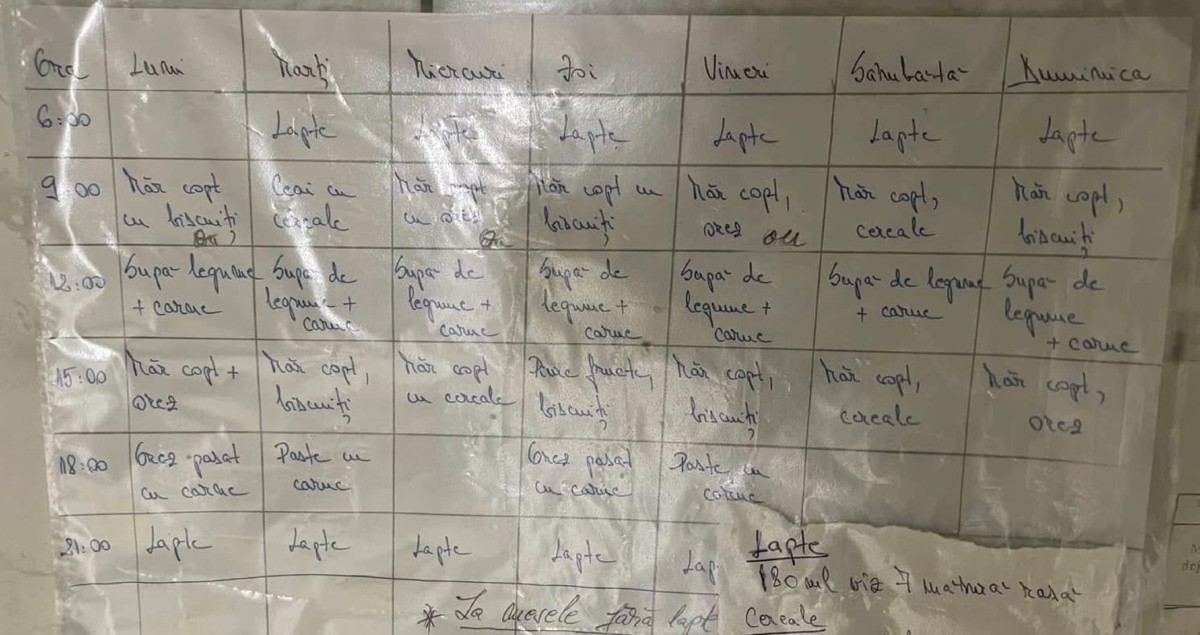 Ora Luni Marți Miercuri Joi Vineri Sâmbătă Duminica
6:00 Lapte Lapte Lapte Lapte Lapte Lapte
9:00 Măr copt Ceai cu Măr copt Măr copt cu Măr copt, Măr copt, Măr copt,
cu biscuiți cereale cu orez biscuiți orez ou cereale biscuiți
12:00 Supă legume Supă de Supă de Supă de Supă de Supă de legume Supă de
+ carne legume + legume + legume + legume + + carne legume
carne carne carne carne + carne
15:00 Măr copt + Măr copt, Măr copt Piure fructe, Măr copt, Măr copt, Măr copt,
orez biscuiți cu cereale biscuiți biscuiți cereale orez
18:00 Orez pasat Paste cu Orez pasat Paste cu
cu carne carne cu carne carne
21:00 Lapte Lapte Lapte Lapte Lap
Lapte
180 ml
* La mesele fără lapt
Cereale